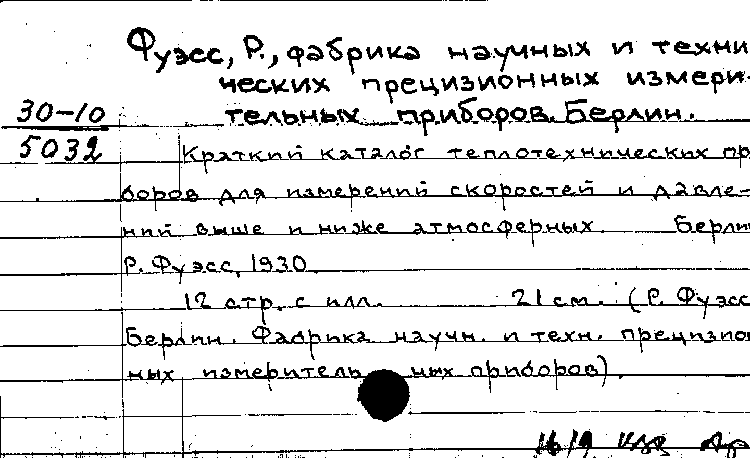 Фуэсс, Р., фабрика научных и техни-
ческих прецизионных измери-
30-10 тельных приборов. Берлин.
5032 Краткий каталог теплотехнических пр
боров для измерений скоростей и давле-
ний выше и ниже атмосферных. Берлин
Р. Фуэсс, 1930.
12 стр. с илл. 21 см. (Р. Фуэсс
Берлин. Фабрика научн. и техн. прецизион
ных измеритель ных приборов).
16/9